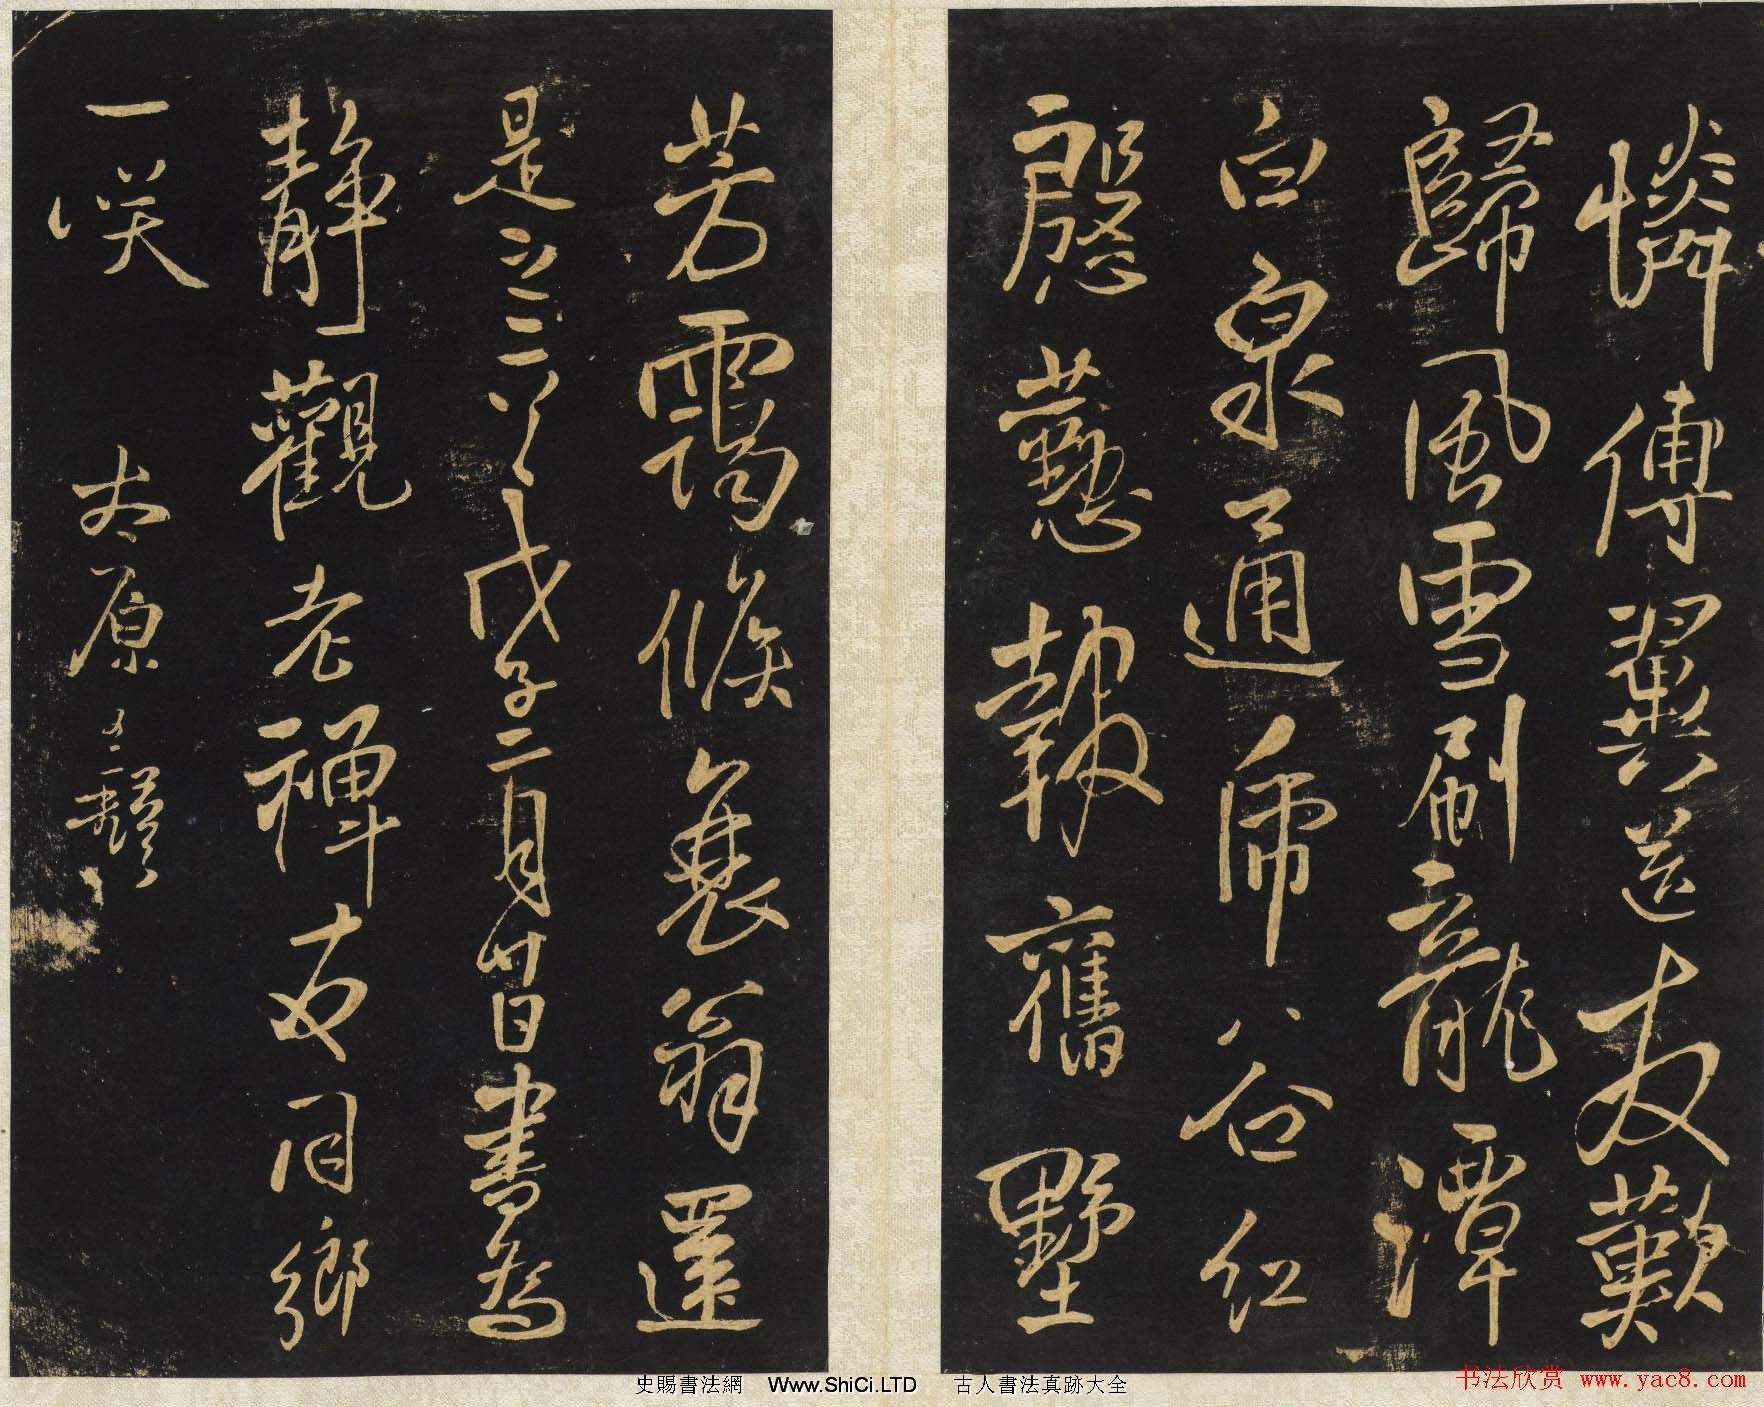 憐傅翼送友歎
歸風雪刷龍潭
白泉通谷紅
慇懃報舊野
芳靄候衰翁還
是戊子二月廿日書為
靜觀老禪友同鄉
一咲 太原
史賜書法網 Www.ShiCi.LTD 古人書法真跡大全
书法欣赏 www.yac8.com